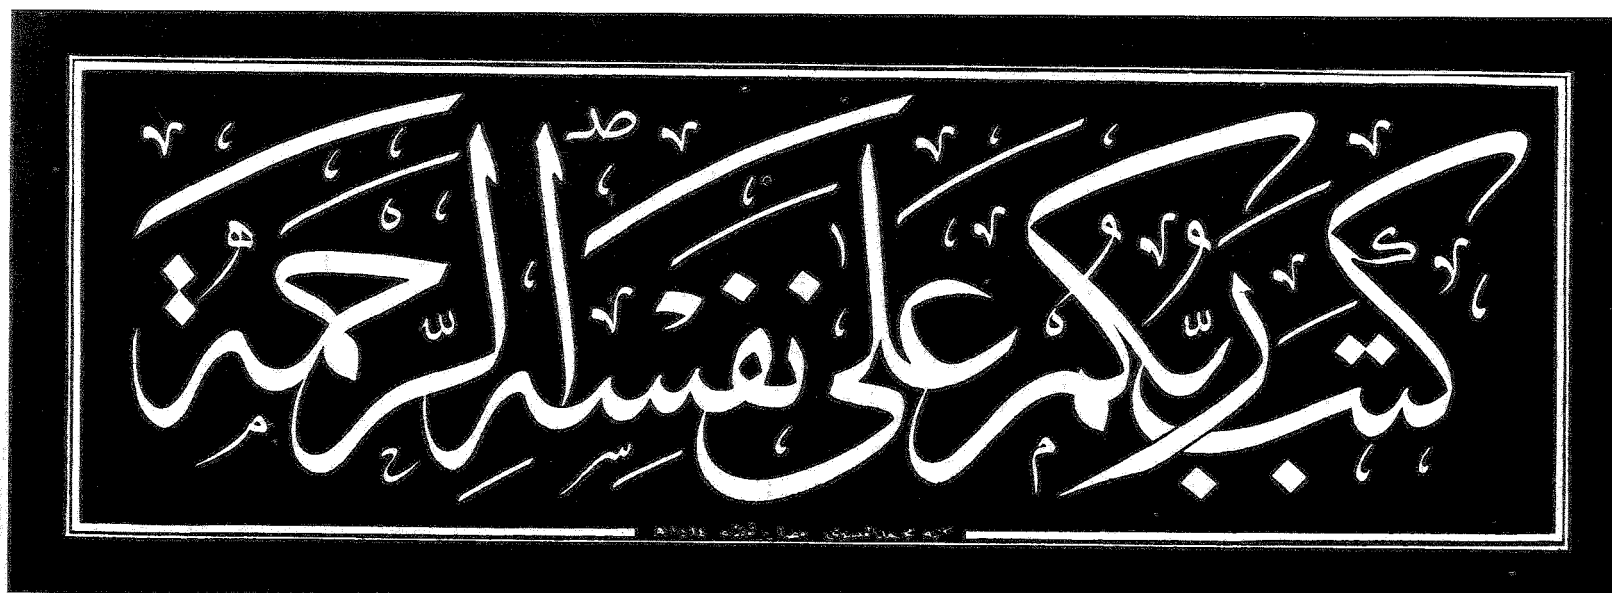 كَتَبَ رَبُّكُمْ عَلَى نَفْسِهِ الرَّحْمَةَ